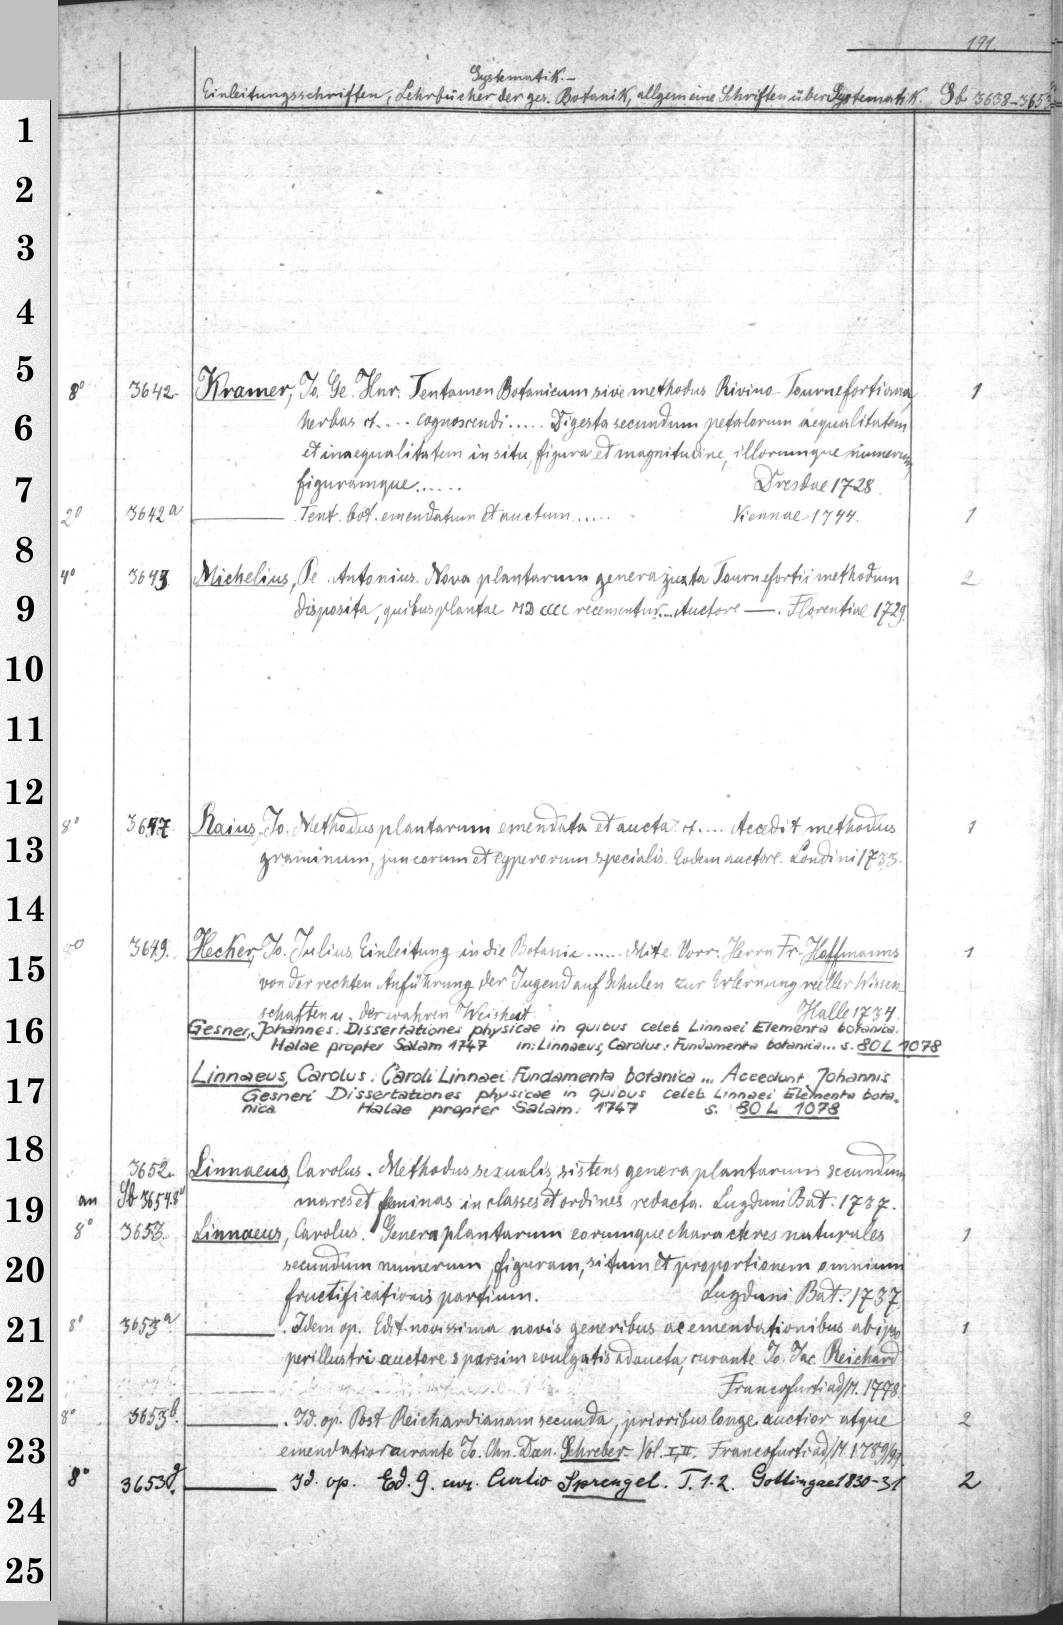 191.
Systematik.-
Einleitungsschriften, Lehrbücher der ges. Botanik, allgemeine Schriften über Systematik. Sb 3638-3653
8° 3642. Kramer, Jo. Ge. Hnr. Tentamen Botanicum sive methodus Rivino-Tournefortiana, 1
herbas et.... cognoscendi..... Digesta secundum petalorum aequalitatem
et inaequalitatem in situ, figura et magnitudine, illorumque numerum,
figuramque...... Dresdae 1728.
2° 3642a ——— Tent. bot. emendatum et auctum..... Viennae 1744. 1
4° 3643 Michelius, Pe. Antonius. Nova plantarum genera juxta Tournefortii methodum 2
disposita, quibus plantae recensentur... Auctore —. Florentiae 1729.
8° 3647. Raius, Jo. Methodus plantarum emendata et aucta et.... Accedit methodus 1
graminum, juncorum et cyperorum specialis. Eodem auctore. Londini 1733.
8° 3649. Hecker, Jo. Julius. Einleitung in die Botanic ...... Mit e. Vorr. Herrn Fr. Hoffmanns 1
von der rechten Anführung der Jugend auf Schulen zur Erlernung reeller Wissen-
schaften u. der wahren Weisheit. Halle 1734.
Gesner, Johannes: Dissertationes physicae in quibus celeb. Linnaei Elementa botanica.
Halae propter Salam 1747 in: Linnaeus, Carolus: Fundamenta botanica... s. 80 L 1078
Linnaeus, Carolus: Caroli Linnaei Fundamenta botanica ... Accedunt Johannis
Gesneri Dissertationes physicae in quibus celeb. Linnaei Elementa bota-
nica Halae propter Salam: 1747 s. 80 L 1078
3652. Linnaeus, Carolus. Methodus sexualis, sistens genera plantarum secundum
an Sb 3654.8° mares et feminas in classes et ordines redacta. Lugduni Bat. 1737.
8° 3653. Linnaeus, Carolus. Genera plantarum eorumque characteres naturales 1
secundum numerum, figuram, situm et proportionem omnium
fructificationis partium. Lugduni Bat. 1737.
8° 3653a ———. Idem op. Edit. novissima novis generibus ac emendationibus ab ipso 1
perillustri auctore sparsim evulgatis adaucta, curante Jo. Jac. Reichard
Francofurti ad/M. 1778.
8° 3653b. ———. Id. op. Post Reichardianam secunda, prioribus longe auctior atque 2
emendatior curante Jo. Chn. Dan. Schreber. Vol. I, II. Francofurti ad/M. 1789/91.
8° 3653d. ——— Id. op. Ed. 9. cur. Curtio Sprengel. T. 1.2. Gottingae 1830-31 2
1
2
3
4
5
6
7
8
9
10
11
12
13
14
15
16
17
18
19
20
21
22
23
24
25